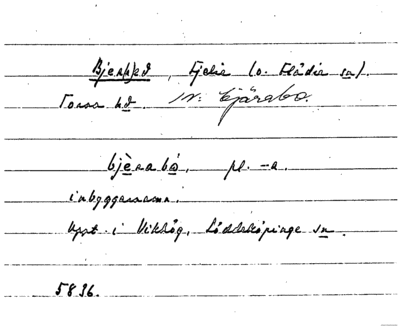 Bjerred, Fjelie (o. Flädie sn).
Torna hd. nr. Bjärabo.
bjèrabó, pl. -a.
inbyggarnamn.
Uppt. i Vikhög, Löddeköpinge sn.
5836.